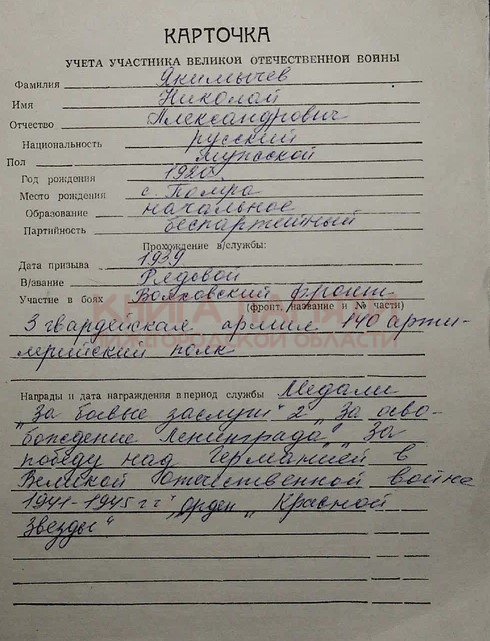 КАРТОЧКА
УЧЕТА УЧАСТНИКА ВЕЛИКОЙ ОТЕЧЕСТВЕННОЙ ВОЙНЫ
Фамилия Якимычев
Имя Николай
Отчество Александрович
Национальность русский
Пол мужской
Год рождения 1920г.
Место рождения с. Помра
Образование начальное
Партийность беспартейный
Прохождение в/службы:
Дата призыва 1939
В/звание Рядовой
Участие в боях Волховский фронт
(фронт, название и № части)
3 гвардейская армия 140 арти-
лерийский полк
КНИГА ПАМЯТИ
НИЖЕГОРОДСКОЙ ОБЛАСТИ
Награды и дата награждения в период службы Медали
„За боевые заслуги" 2 „За осво-
бождение Ленинграда", „За
победу над Германией в
Великой Отечественной войне
1941-1945 гг" Орден „Красной
Звезды"